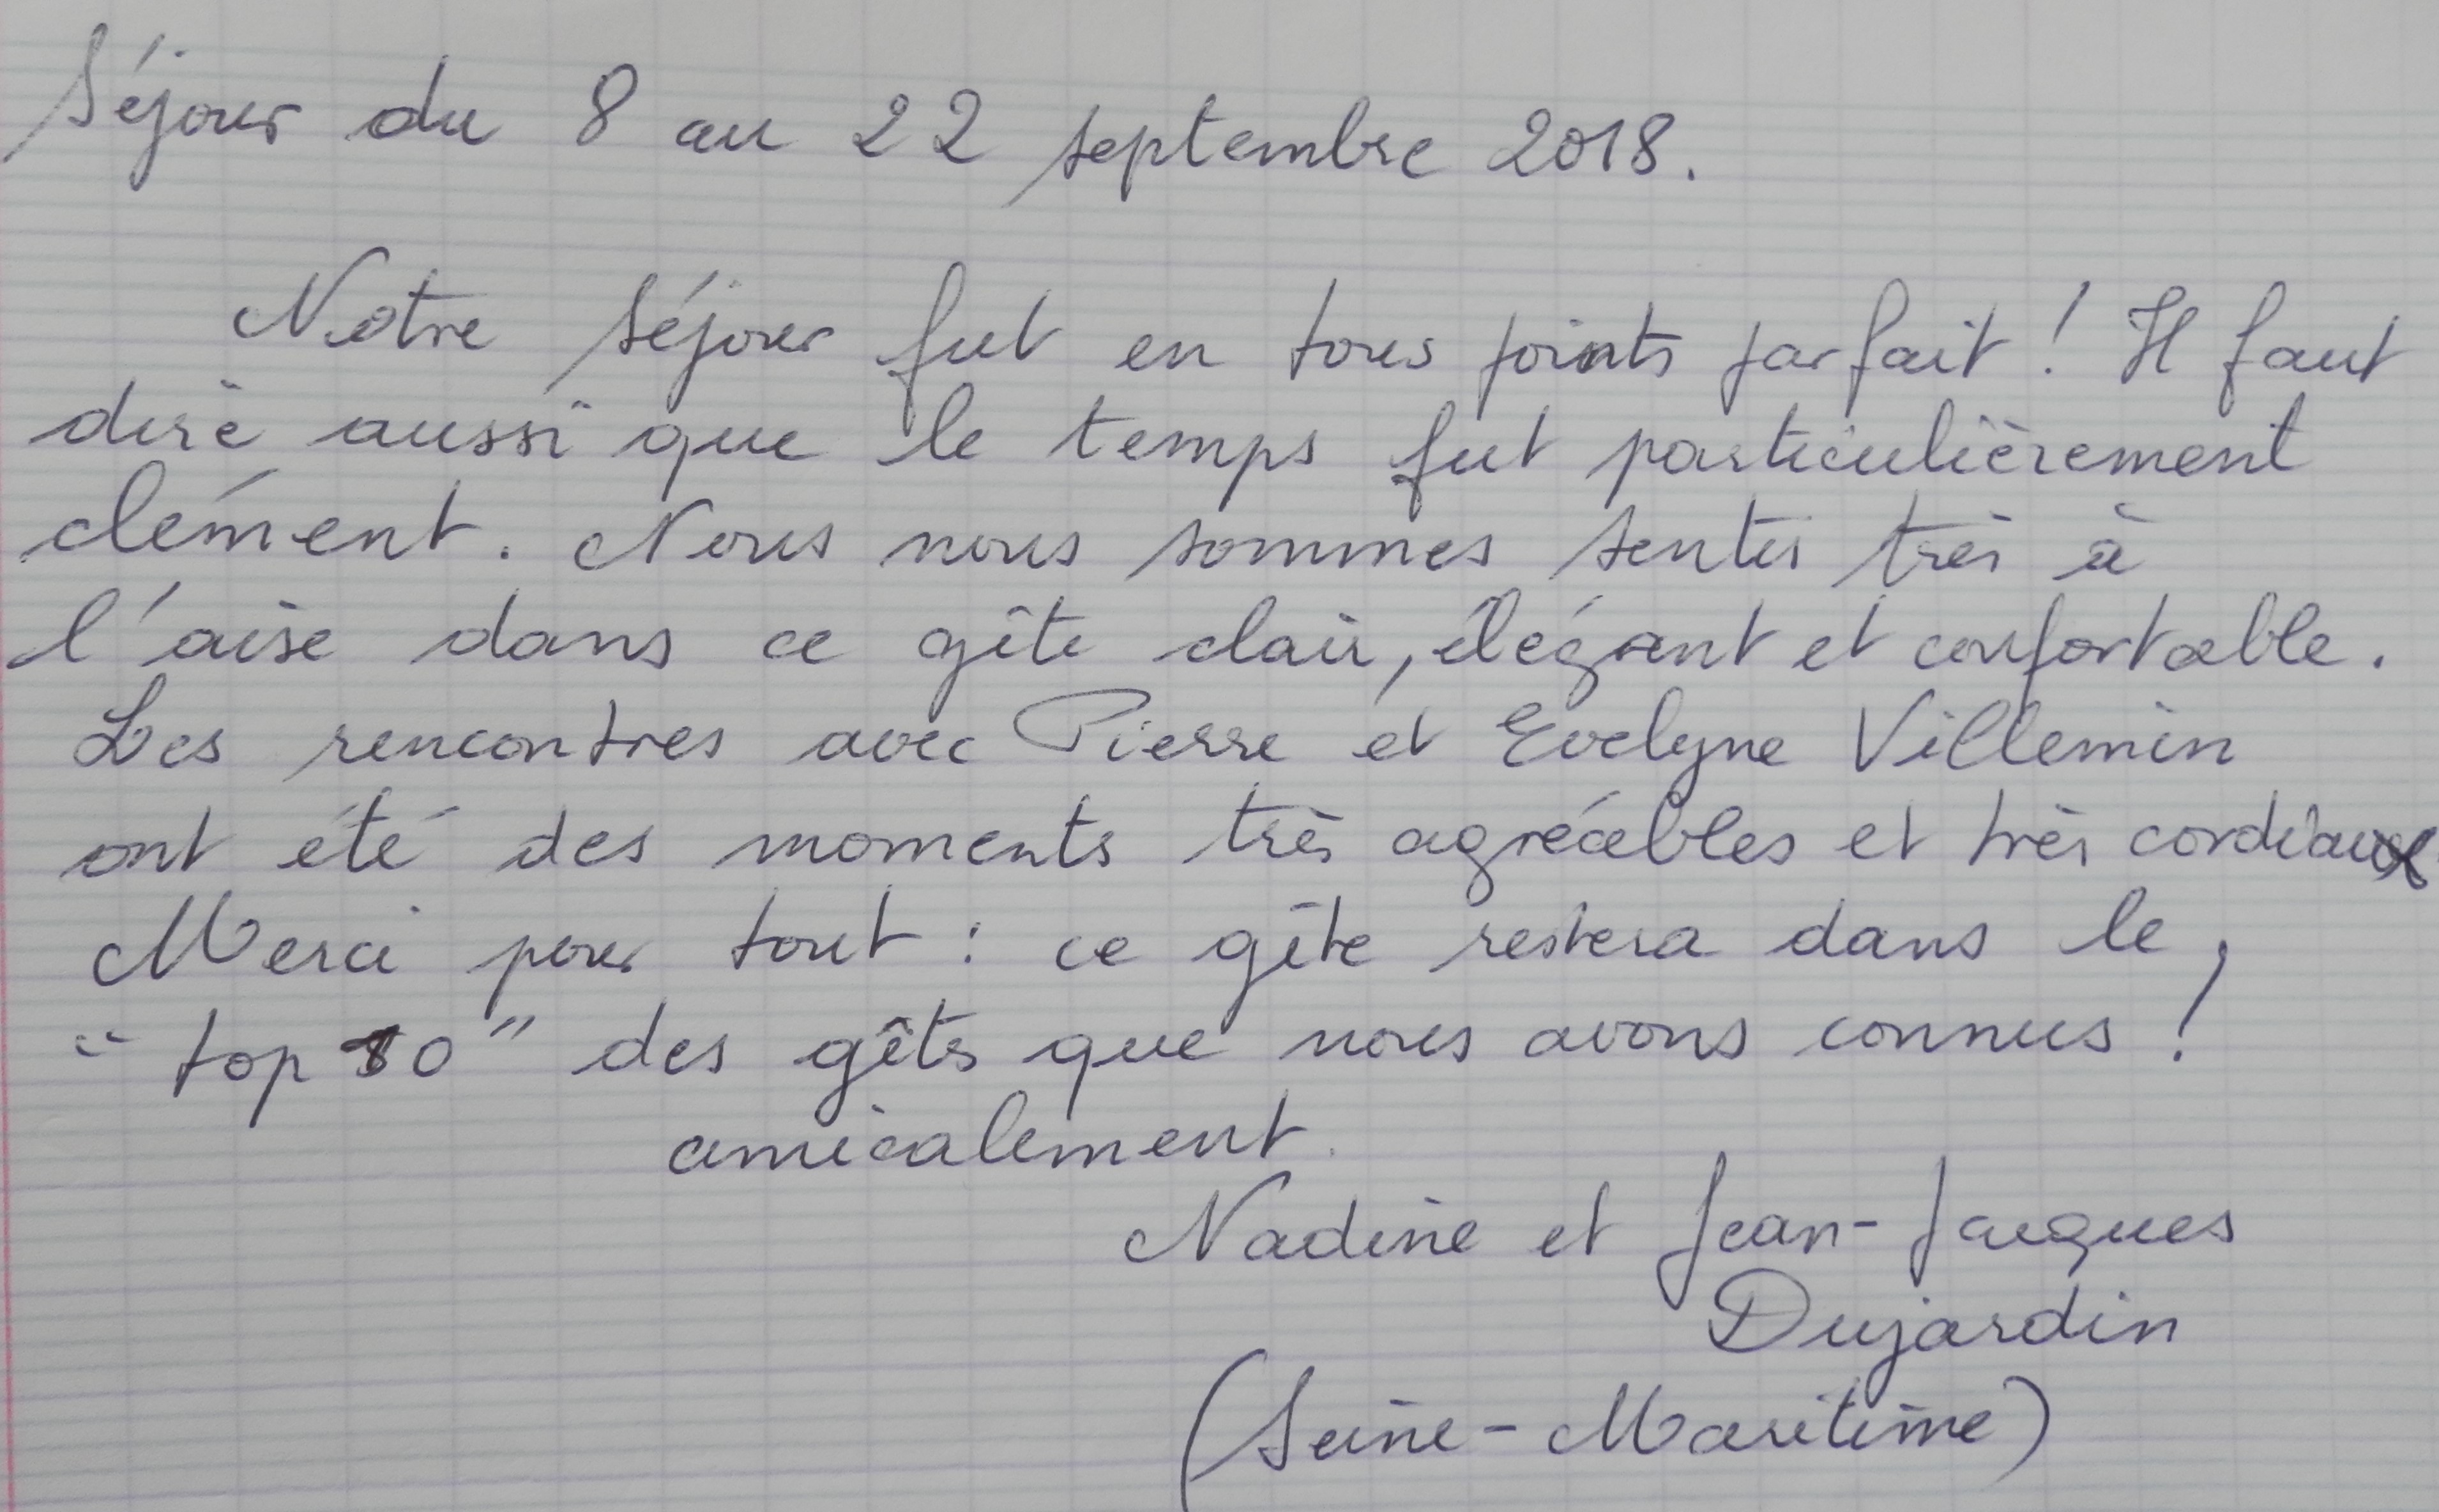 Séjour du 8 au 22 septembre 2018.
Notre séjour fut en tous points parfait ! Il faut
dire aussi que le temps fut particulièrement
clément. Nous nous sommes sentis très à
l'aise dans ce gîte clair, élégant et confortable.
Les rencontres avec Pierre et Evelyne Villemin
ont été des moments très agréables et très cordiaux
Merci pour tout : ce gîte restera dans le
"top 10" des gîtes que nous avons connus !
amicalement.
Nadine et Jean-Jacques
Dujardin
(Seine-Maritime)